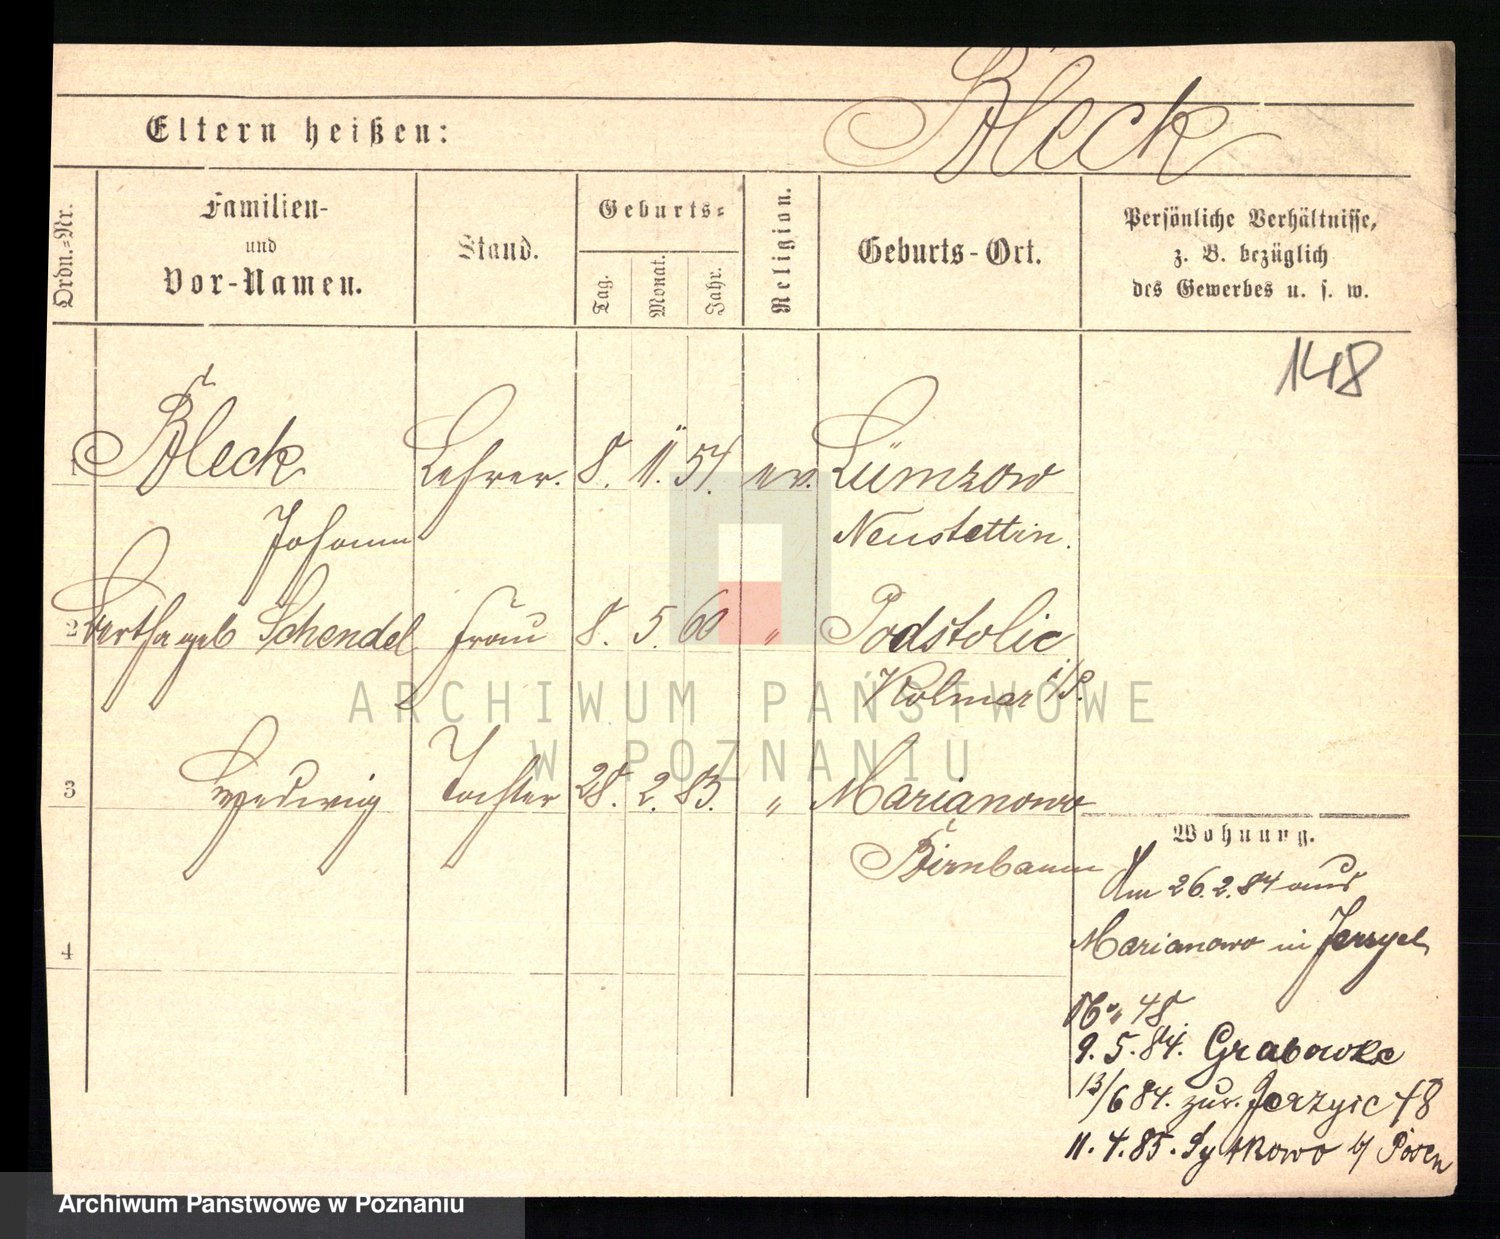 Bleck
Eltern heißen:
Ordn.-Nr.
Familien-
und
Vor-Namen.
Stand.
Geburts-
Tag.
Monat.
Jahr.
Religion.
Geburts-Ort.
Persönliche Verhältnisse,
z. B. bezüglich
des Gewerbes u. s. w.
148
1 Bleck Lehrer. 8. 11. 54. ev. Lümzow
Johann Neustettin.
2 Bertha geb Schendel Frau 8. 5. 60 " Podstolic
Kolmar i/P.
ARCHIWUM PAŃSTWOWE
W POZNANIU
3 Hedwig Tochter 28. 2. 83. " Marianowo
Birnbaum
Wohnung.
Am 26.2.84 aus
Marianowo in Jerzyce
No 48
9. 5. 84. Grabowke
13/6 84. zur. Jerzyic 48
11. 4. 85. Sytkowo b/ Posen
4
Archiwum Państwowe w Poznaniu